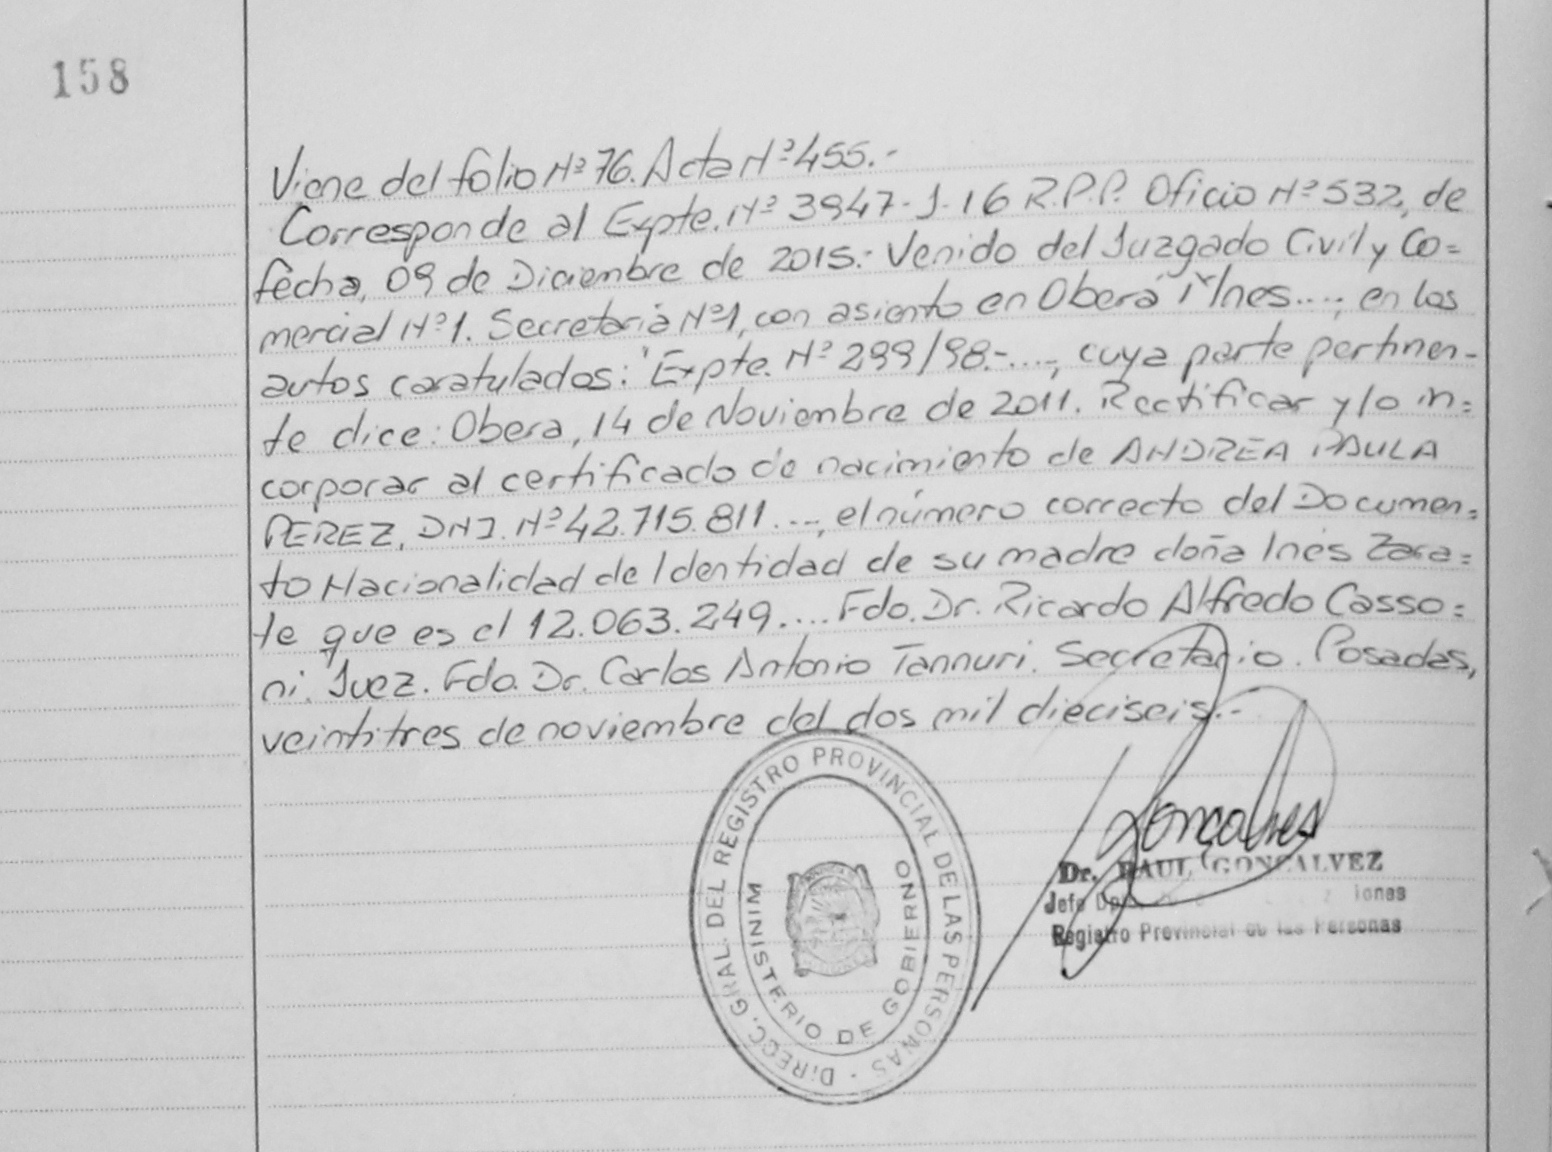 158
Viene del folio Nº 76. Acta Nº 455.-
Corresponde al Expte. Nº 3947-J-16 R.P.P. Oficio Nº 532, de
fecha, 09 de Diciembre de 2015.- Venido del Juzgado Civil y Co=
mercial Nº 1. Secretaria Nº 1, con asiento en Oberá Mnes...., en los
autos caratulados: "Expte. Nº 299/98.-...., cuya parte pertinen-
te dice: Obera, 14 de Noviembre de 2011. Rectificar y/o in=
corporar al certificado de nacimiento de ANDREA PAULA
PEREZ, DNI. Nº 42.715.811...., el número correcto del Documen=
to Nacionalidad de Identidad de su madre doña Inés Zara=
te que es el 12.063.249.... Fdo. Dr. Ricardo Alfredo Casso=
ni. Juez. Fdo. Dr. Carlos Antonio Tannuri. Secretario. Posadas,
veintitres de noviembre del dos mil dieciseis.-
DIRECC. GRAL. DEL REGISTRO PROVINCIAL DE LAS PERSONAS -
MINISTERIO DE GOBIERNO
Goncalves
Dr. RAUL GONCALVEZ
Jefe Dpto.
Registro Provincial de las Personas